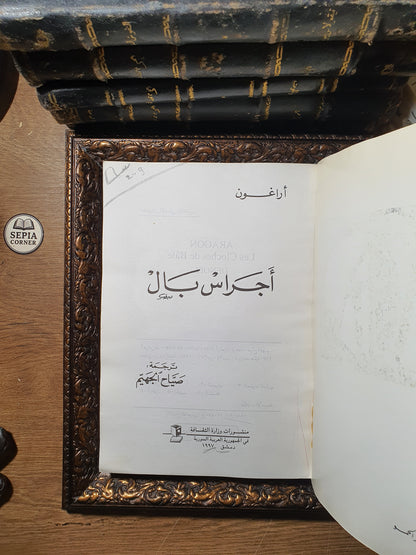 SEPIA
CORNER
أراغون
ARAGON
Les Cloches de Bâle
أجراس بال
ترجمة:
صياح الجهيم
منشورات وزارة الثقافة
في الجمهورية العربية السورية
دمشق ١٩٩٧